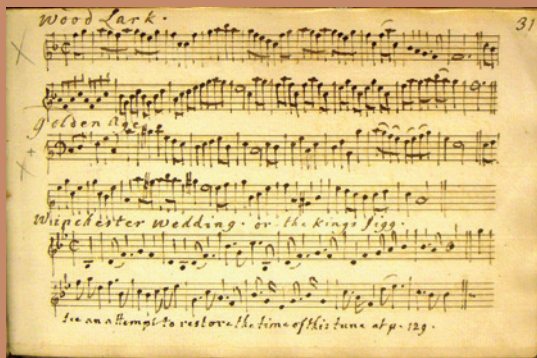 Wood Lark.
31
golden age
Winchester Wedding. or the Kings Jigg.
see an attempt to restore the time of this tune at p. 129.